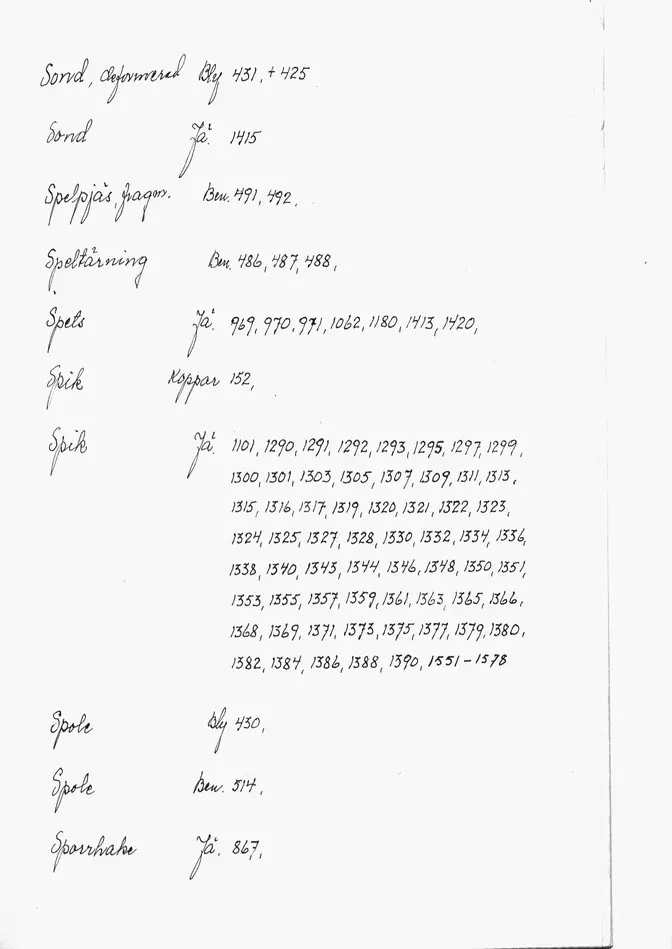 Sond, deformerad Bly 431, + 425
Sond Jä. 1415
Spelpjäs, fragm. Ben. 491, 492,
Speltärning Ben. 486, 487, 488,
Spets Jä. 969, 970, 971, 1062, 1180, 1413, 1420,
Spik Koppar 152,
Spik Jä. 1101, 1290, 1291, 1292, 1293, 1295, 1297, 1299,
1300, 1301, 1303, 1305, 1307, 1309, 1311, 1313,
1315, 1316, 1317, 1319, 1320, 1321, 1322, 1323,
1324, 1325, 1327, 1328, 1330, 1332, 1334, 1336,
1338, 1340, 1343, 1344, 1346, 1348, 1350, 1351,
1353, 1355, 1357, 1359, 1361, 1363, 1365, 1366,
1368, 1369, 1371, 1373, 1375, 1377, 1379, 1380,
1382, 1384, 1386, 1388, 1390, 1551-1578
Spole Bly 430,
Spole Ben. 514,
Sporrhake Jä. 867,